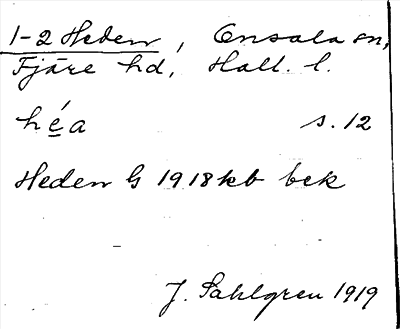 1-2 Heden, Onsala sn,
Fjäre hd, Hall. l.
hé̲a s. 12
Heden G 1918 kb bek
J. Sahlgren 1919